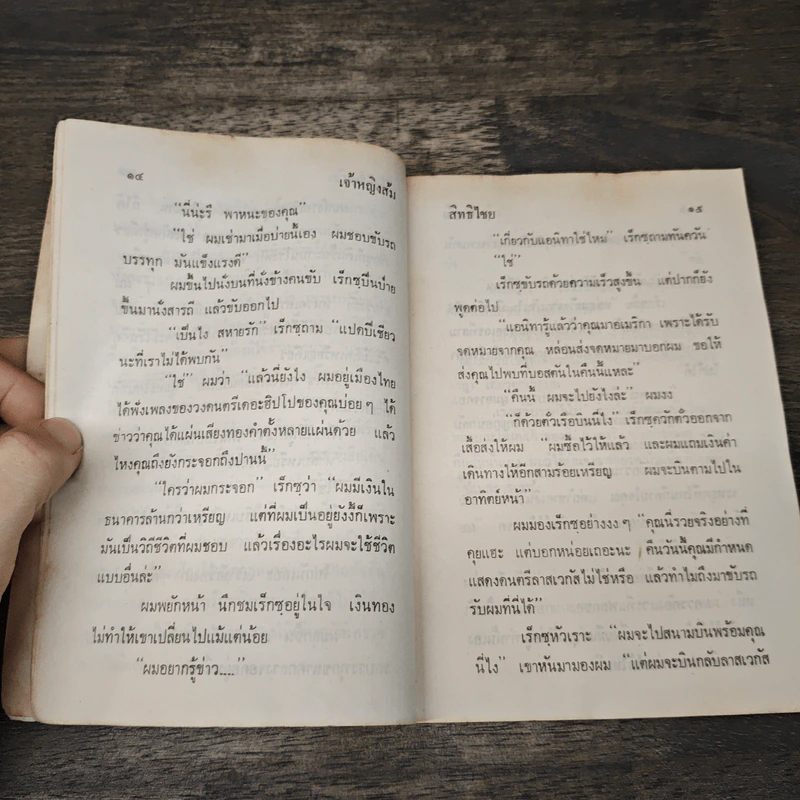 ๑๔
เจ้าหญิงส้ม
"นี่น่ะรึ พาหนะของคุณ"
"ใช่ ผมเช่ามาเมื่อบ่ายนี้เอง ผมชอบขับรถ
บรรทุก มันแข็งแรงดี"
ผมขึ้นไปนั่งบนที่นั่งข้างคนขับ เร็กซฺปีนป่าย
ขึ้นมานั่งสารถี แล้วขับออกไป
"เป็นไง สหายรัก" เร็กซฺถาม "แปดปีเชียว
นะที่เราไม่ได้พบกัน"
"ใช่" ผมว่า "แล้วนี่ยังไง ผมอยู่เมืองไทย
ได้ฟังเพลงของวงดนตรีเดอะฮิปโปของคุณบ่อยๆ ได้
ข่าวว่าคุณได้แผ่นเสียงทองคำตั้งหลายแผ่นด้วย แล้ว
ไหงคุณถึงยังกระจอกถึงปานนี้"
"ใครว่าผมกระจอก" เร็กซฺว่า "ผมมีเงินใน
ธนาคารล้านกว่าเหรียญ แต่ที่ผมเป็นอยู่ยังงี้ก็เพราะ
มันเป็นวิถีชีวิตที่ผมชอบ แล้วเรื่องอะไรผมจะใช้ชีวิต
แบบอื่นล่ะ"
ผมพยักหน้า นึกชมเร็กซฺอยู่ในใจ เงินทอง
ไม่ทำให้เขาเปลี่ยนไปแม้แต่น้อย
"ผมอยากรู้ข่าว...."
สิทธิไชย
๑๕
"เกี่ยวกับแอนิทาใช่ไหม" เร็กซฺถามทันควัน
"ใช่"
เร็กซฺขับรถด้วยความเร็วสูงขึ้น แต่ปากก็ยัง
พูดต่อไป
"แอนิทารู้แล้วว่าคุณมาอเมริกา เพราะได้รับ
จดหมายจากคุณ หล่อนส่งจดหมายมาบอกผม ขอให้
ส่งคุณไปพบที่บอสตันในคืนนี้แหละ"
"คืนนี้ ผมจะไปยังไงล่ะ" ผมงง
"ก็ด้วยตั๋วเรือบินนี่ไง" เร็กซฺควักตั๋วออกจาก
เสื้อส่งให้ผม "ผมซื้อไว้ให้แล้ว และผมแถมเงินค่า
เดินทางให้อีกสามร้อยเหรียญ ผมจะบินตามไปใน
อาทิตย์หน้า"
ผมมองเร็กซฺอย่างงงๆ "คุณนี่รวยจริงอย่างที่
คุยแฮะ แต่บอกหน่อยเถอะนะ คืนวันนี้คุณมีกำหนด
แสดงดนตรีลาสเวกัสไม่ใช่หรือ แล้วทำไมถึงมาขับรถ
รับผมที่นี่ได้"
เร็กซฺหัวเราะ "ผมจะไปสนามบินพร้อมคุณ
นี่ไง" เขาหันมามองผม "แต่ผมจะบินกลับลาสเวกัส